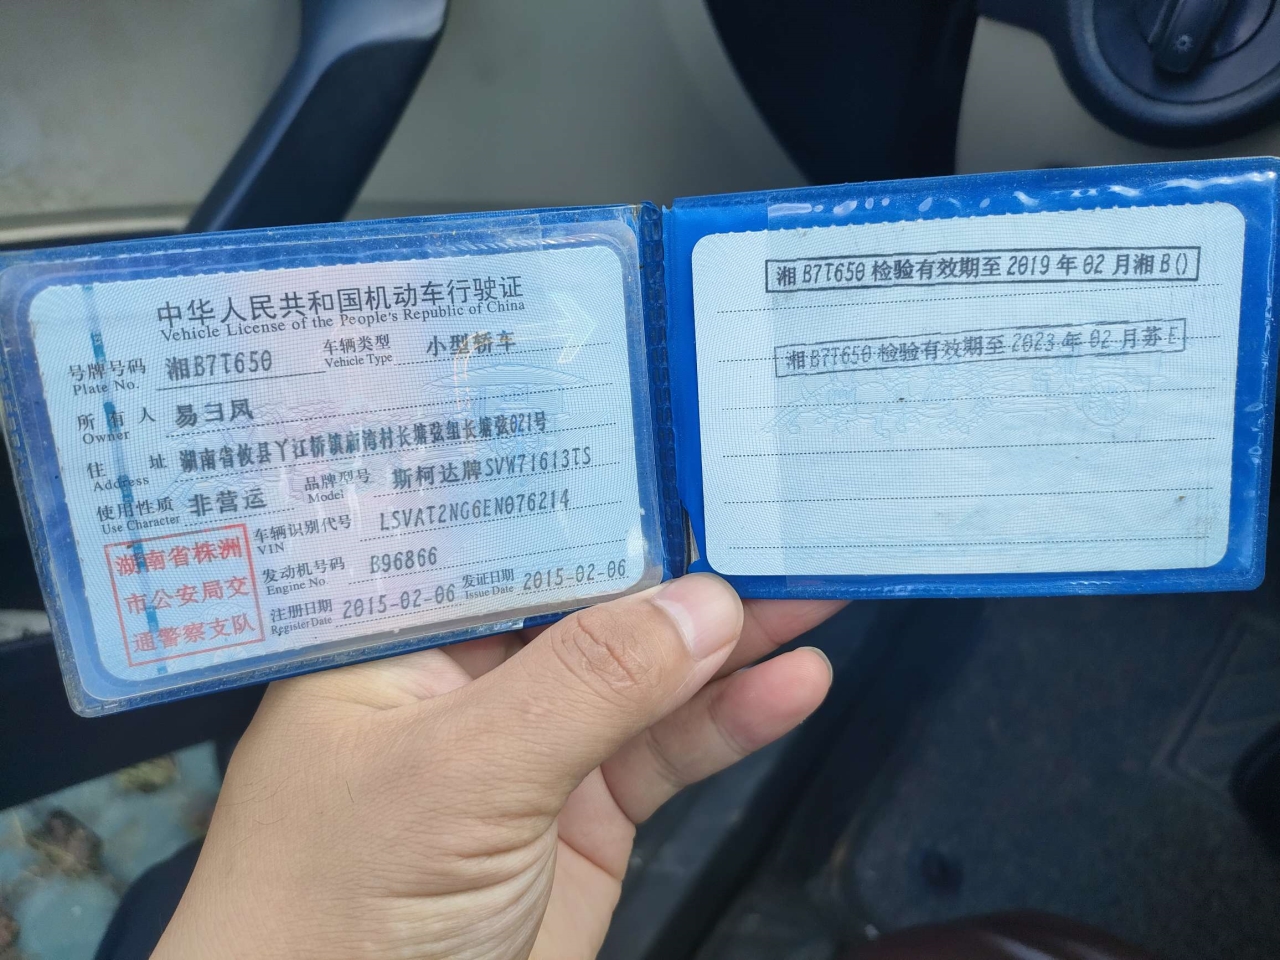 中华人民共和国机动车行驶证
Vehicle License of the People's Republic of China
号牌号码 湘B7T650 车辆类型 小型轿车
Plate No. Vehicle Type
所有人 易彐凤
Owner
住址 湖南省攸县丫江桥镇庙湾村长塘弦组长塘弦021号
Address
使用性质 非营运 品牌型号 斯柯达牌SVW71613TS
Use Character Model
湖南省株洲
市公安局交
通警察支队
车辆识别代号 LSVAT2NG6EN076214
VIN
发动机号码 B96866
Engine No.
注册日期 2015-02-06 发证日期 2015-02-06
Register Date Issue Date
湘B7T650检验有效期至2019年02月湘B()
湘B7T650检验有效期至2023年02月苏E